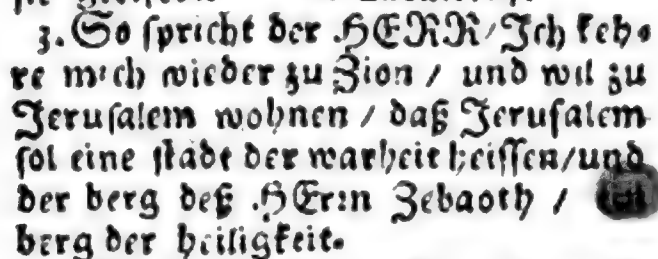 3. So spricht der HERR/ Jch keh-
re mich wieder zu Zion / und wil zu
Jerusalem wohnen / daß Jerusalem
sol eine stadt der warheit heissen/und
der berg deß HErrn Zebaoth /
berg der heiligkeit.